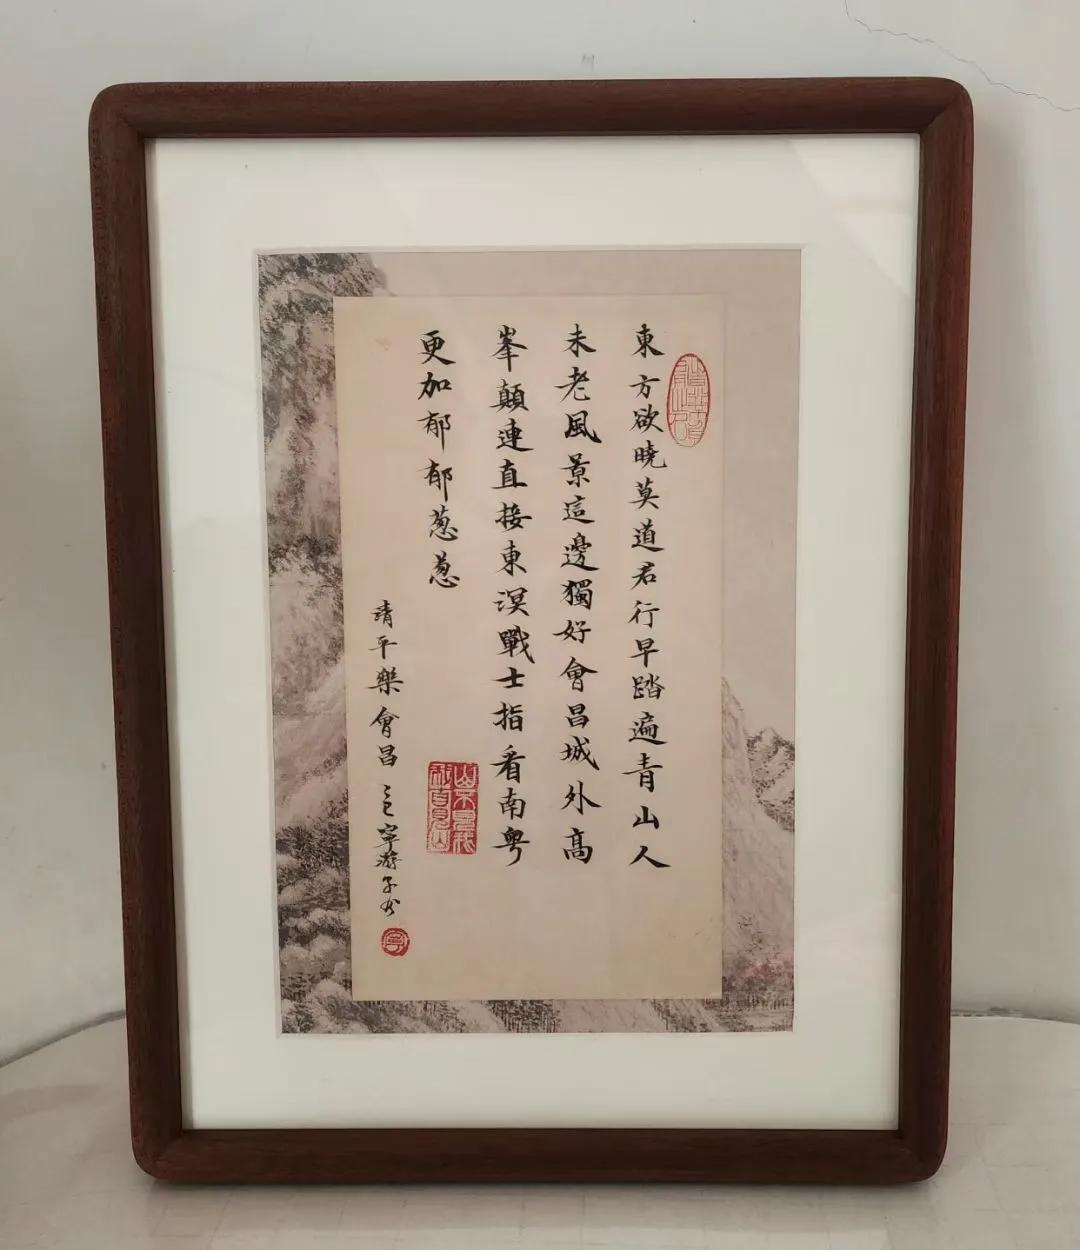 東方欲曉莫道君行早踏遍青山人
未老風景這邊獨好會昌城外高
峯顛連直接東溟戰士指看南粵
更加郁郁葱葱
清平樂會昌
寧游子书